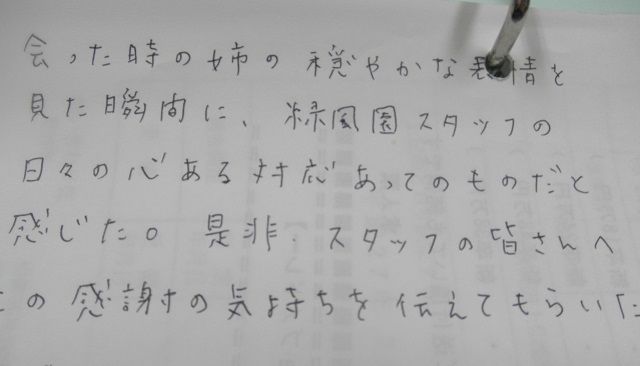 会った時の姉の穏やかな表情を
見た瞬間に、緑風園スタッフの
日々の心ある対応あってのものだと
感じた。是非、スタッフの皆さんへ
この感謝の気持ちを伝えてもらいた